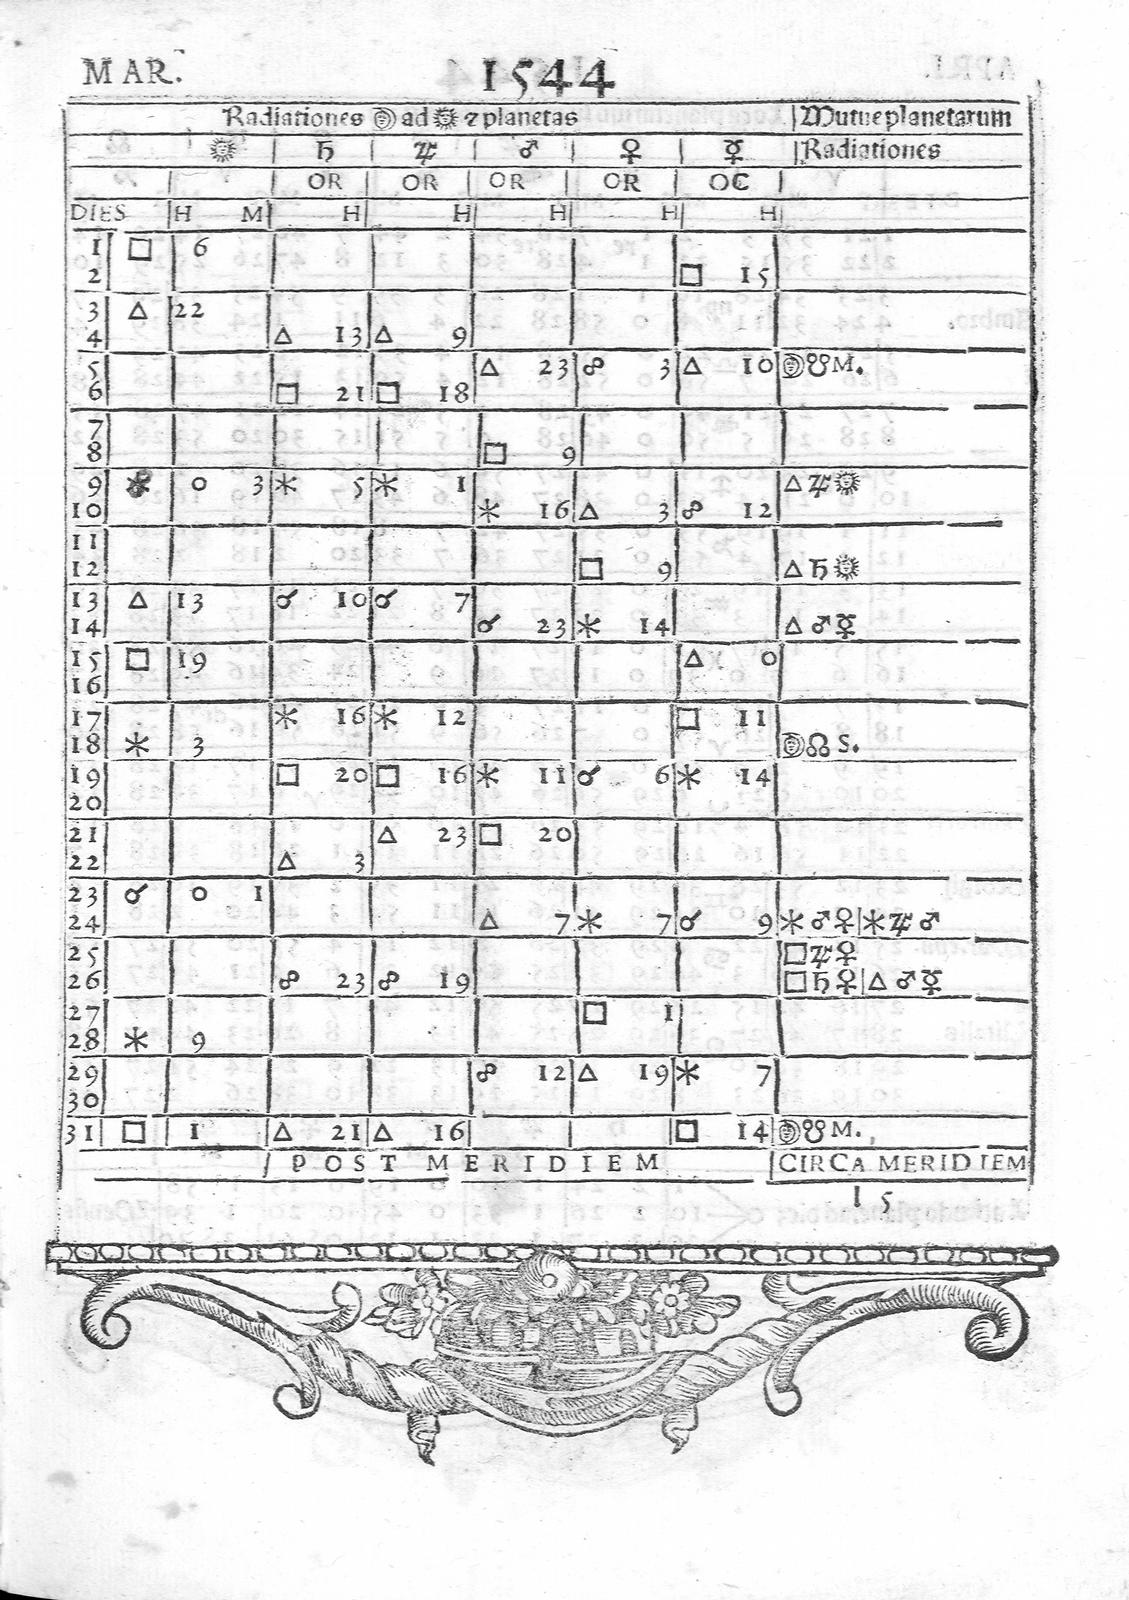 MAR. 1544
Radiationes ☽ ad ☉ ⁊ planetas | Mutue planetarum
☉ | ♄ | ♃ | ♂ | ♀ | ☿ | Radiationes
OR | OR | OR | OR | OC
DIES | H M | H | H | H | H | H
1 □ 6
2 □ 15
3 △ 22
4 △ 13 △ 9
5 △ 23 ☍ 3 △ 10 ☽☋M.
6 □ 21 □ 18
7
8 □ 9
9 0 3 ⚹ 5 ⚹ 1 △♃☉
10 ⚹ 16 △ 3 ☍ 12
11
12 □ 9 △♄☉
13 △ 13 ☌ 10 ☌ 7
14 ☌ 23 ⚹ 14 △♂☿
15 □ 19 △ 0
16
17 ⚹ 16 ⚹ 12 □ 11
18 ⚹ 3 ☽☊ S.
19 □ 20 □ 16 ⚹ 11 ☌ 6 ⚹ 14
20
21 △ 23 □ 20
22 △ 3
23 ☌ 0 1
24 △ 7 ⚹ 7 ☌ 9 ⚹♂♀|⚹♃♂
25 □♃♀
26 ☍ 23 ☍ 19 □♄♀|△♂☿
27 □ 1
28 ⚹ 9
29 ☍ 12 △ 19 ⚹ 7
30
31 □ 1 △ 21 △ 16 □ 14 ☽☋M.
POST MERIDIEM | CIRCA MERIDIEM
15